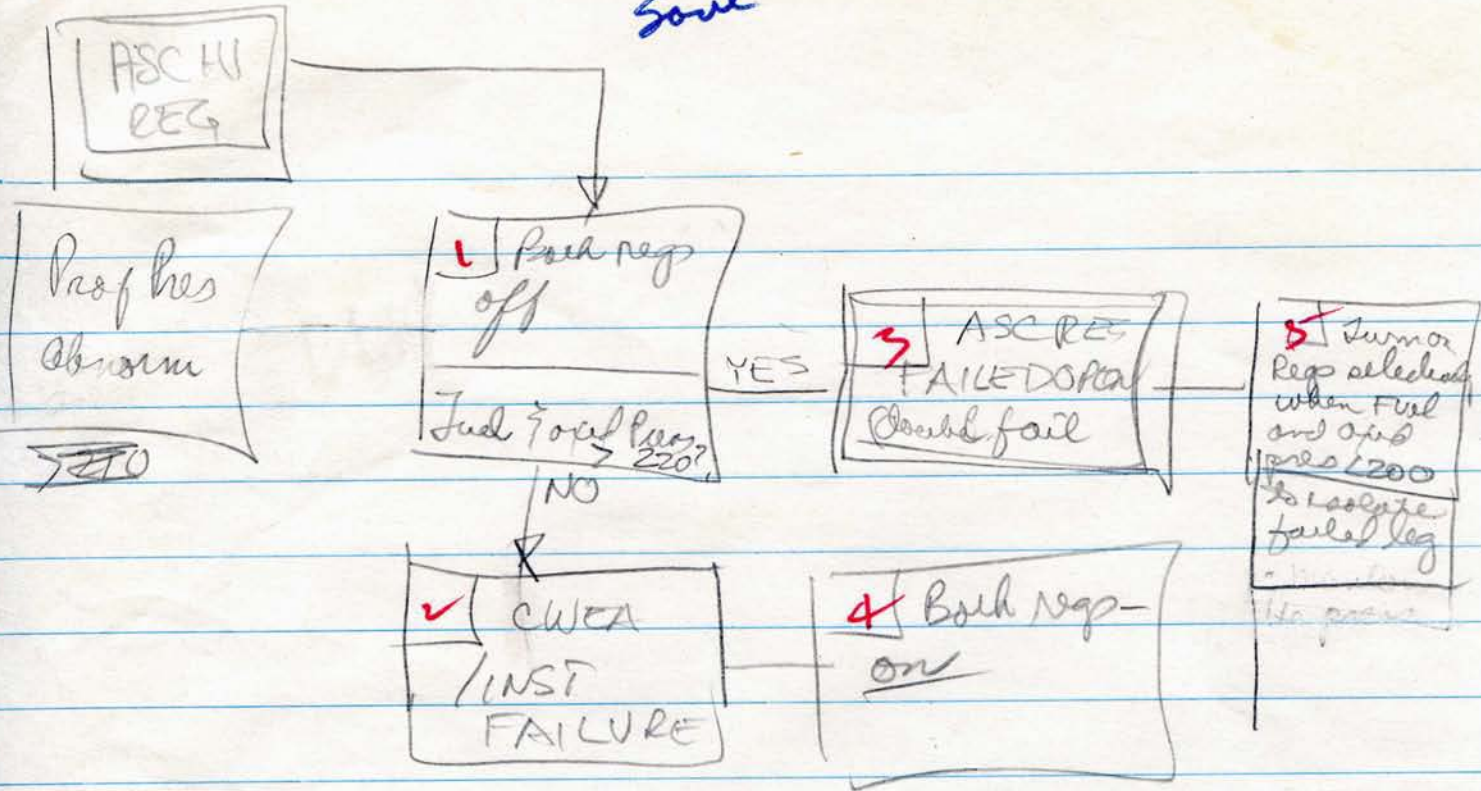 Save
ASC HI
REG
Prop Pres
abnorm
1 Both regs
off
Fuel & oxid Pres
> 220?
YES
NO
3 ASC REG
FAILED OPEN
Double fail
5 Turn on
Regs selectively
when Fuel
and oxid
pres <200
to isolate
failed leg
2 CWEA
/INST
FAILURE
4 Both regs-
on